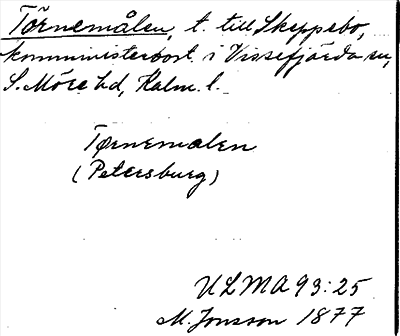 Törnemålen, t. till Skeppebo,
komministerbost. i Vissefjärda sn,
S. Möre hd, Kalm. l.
Tørnemalen
(Petersburg)
ULMA 93:25
M. Jonsson 1877